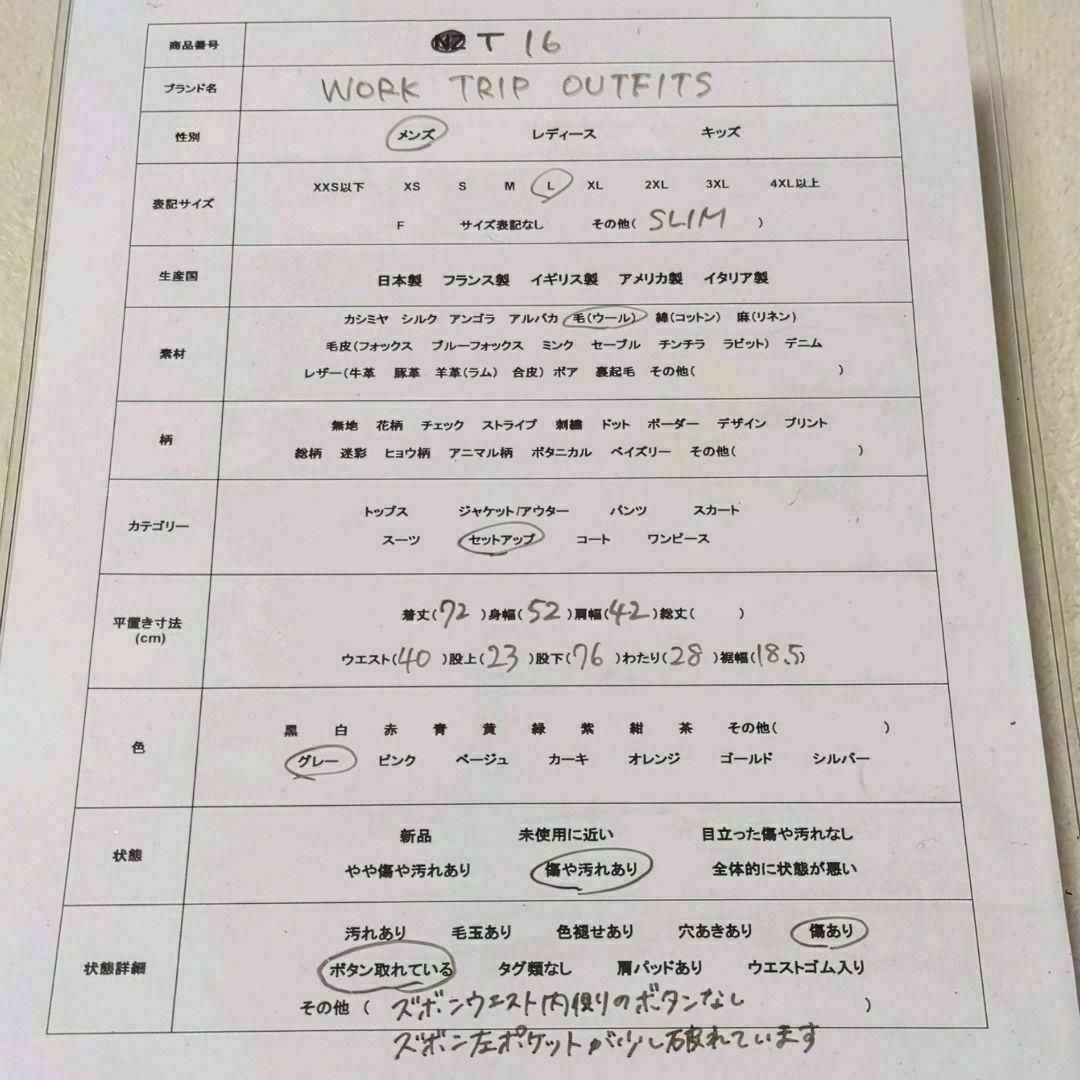 商品番号 NZ T 16
ブランド名 WORK TRIP OUTFITS
性別 メンズ レディース キッズ
XXS以下 XS S M L XL 2XL 3XL 4XL以上
表記サイズ
F サイズ表記なし その他( SLIM )
生産国 日本製 フランス製 イギリス製 アメリカ製 イタリア製
カシミヤ シルク アンゴラ アルパカ 毛(ウール) 綿(コットン) 麻(リネン)
素材 毛皮(フォックス ブルーフォックス ミンク セーブル チンチラ ラビット) デニム
レザー(牛革 豚革 羊革(ラム) 合皮) ボア 裏起毛 その他( )
柄 無地 花柄 チェック ストライプ 刺繍 ドット ボーダー デザイン プリント
総柄 迷彩 ヒョウ柄 アニマル柄 ボタニカル ペイズリー その他( )
トップス ジャケット/アウター パンツ スカート
カテゴリー
スーツ セットアップ コート ワンピース
平置き寸法 着丈(72)身幅(52)肩幅(42)総丈( )
(cm)
ウエスト(40)股上(23)股下(76)わたり(28)裾幅(18.5)
黒 白 赤 青 黄 緑 紫 紺 茶 その他( )
色
グレー ピンク ベージュ カーキ オレンジ ゴールド シルバー
新品 未使用に近い 目立った傷や汚れなし
状態
やや傷や汚れあり 傷や汚れあり 全体的に状態が悪い
汚れあり 毛玉あり 色褪せあり 穴あきあり 傷あり
状態詳細 ボタン取れている タグ類なし 肩パッドあり ウエストゴム入り
その他( ズボンウエスト内側りのボタンなし )
ズボン左ポケットが少し破れています